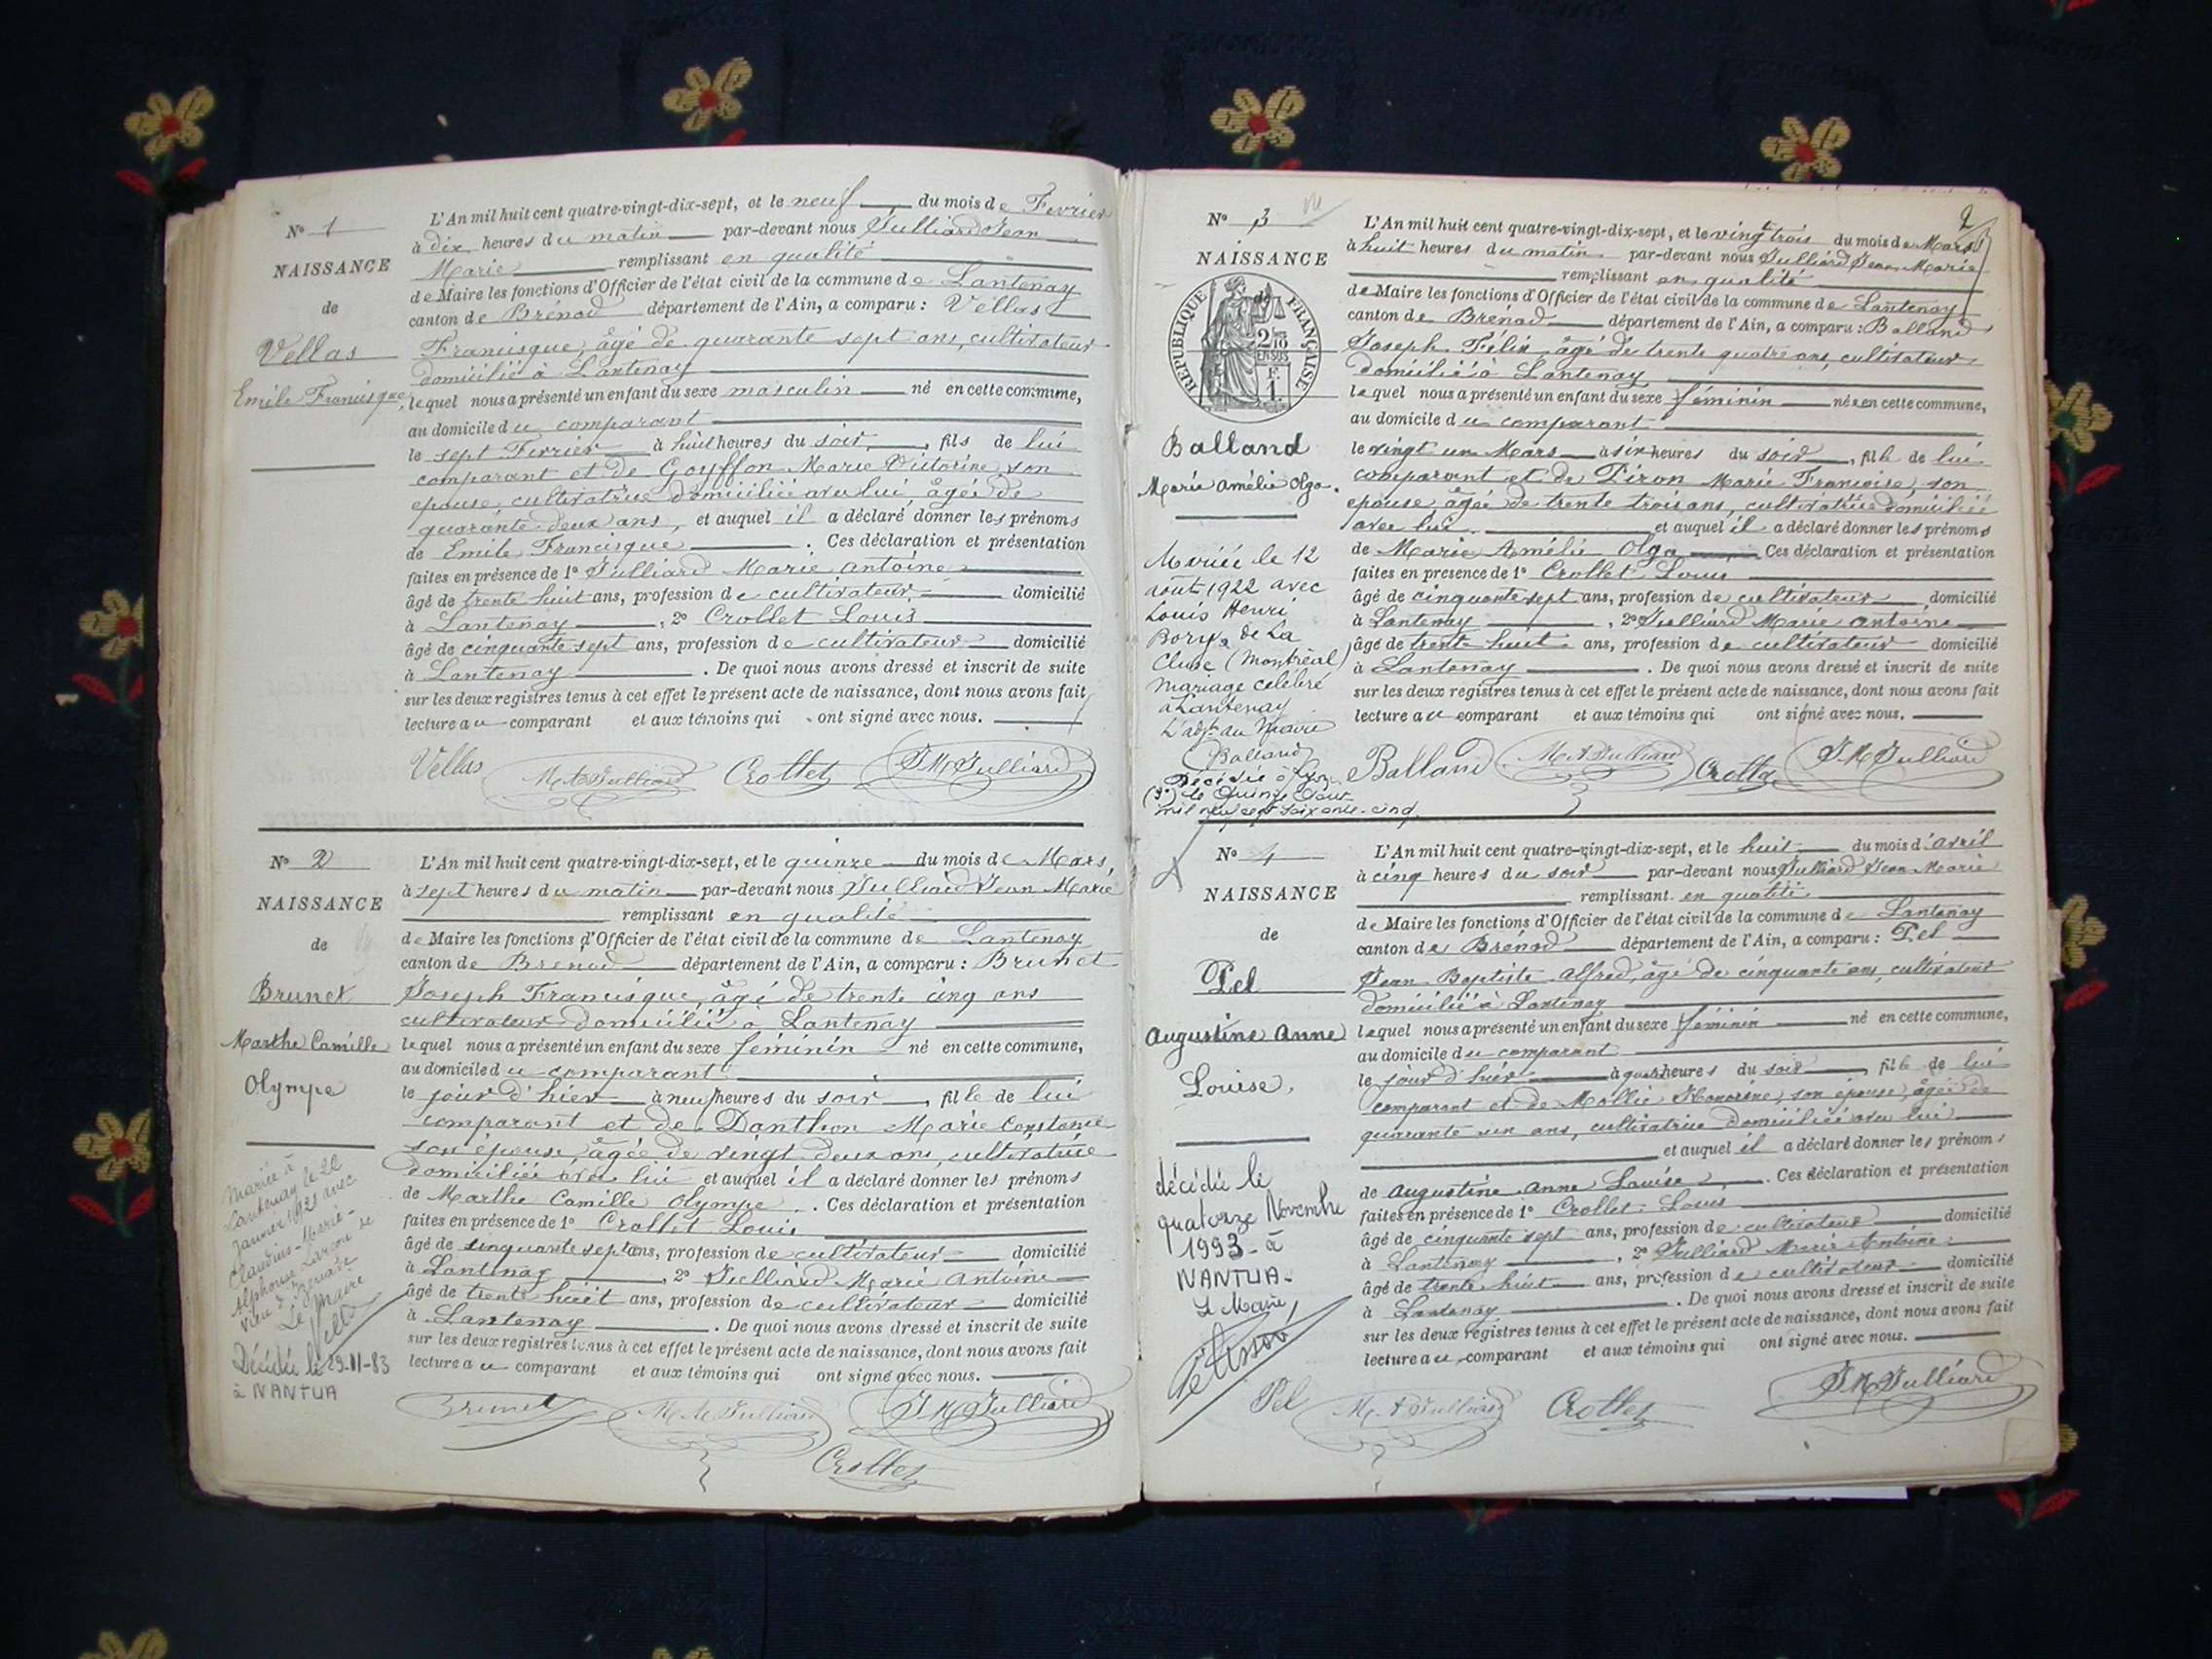 N° 1
NAISSANCE
de
Vellas
Emile Francisque
L'An mil huit cent quatre-vingt-dix-sept, et le neuf du mois de Fevrier
à dix heures du matin par-devant nous Julliard Jean
Marie remplissant en qualité
de Maire les fonctions d'Officier de l'état civil de la commune de Lantenay
canton de Brénod département de l'Ain, a comparu : Vellas
Francisque, âgé de quarante sept ans, cultivateur
domicilié à Lantenay
lequel nous a présenté un enfant du sexe masculin né en cette commune,
au domicile du comparant
le sept Fevrier à huit heures du soir, fils de lui
comparant et de Goyffon Marie Victorine son
epouse, cultivatrice domiciliée avec lui, âgée de
quarante deux ans, et auquel il a déclaré donner les prénoms
de Emile Francisque. Ces déclaration et présentation
faites en présence de 1° Julliard Marie Antoine
âgé de trente huit ans, profession de cultivateur domicilié
à Lantenay, 2° Crollet Louis
âgé de cinquante sept ans, profession de cultivateur domicilié
à Lantenay. De quoi nous avons dressé et inscrit de suite
sur les deux registres tenus à cet effet le présent acte de naissance, dont nous avons fait
lecture au comparant et aux témoins qui ont signé avec nous.
Vellas M A Julliard Crollet J M Julliard
N° 2
NAISSANCE
de
Brunet
Marthe Camille
Olympe
Mariée à
Lantenay le 22
Janvier 1921 avec
Claudius-Marie-
Alphonse Larçon de
Vieu d'Izenave
Le Maire
Décédée le 29-11-83
à NANTUA
L'An mil huit cent quatre-vingt-dix-sept, et le quinze du mois de Mars,
à sept heures du matin par-devant nous Julliard Jean Marie
remplissant en qualité
de Maire les fonctions d'Officier de l'état civil de la commune de Lantenay
canton de Brénod département de l'Ain, a comparu : Brunet
Joseph Francisque, âgé de trente cinq ans
cultivateur domicilié à Lantenay
lequel nous a présenté un enfant du sexe féminin né en cette commune,
au domicile du comparant
le jour d'hier à neuf heures du soir, fille de lui
comparant et de Danthon Marie Constance
son épouse, âgée de vingt deux ans, cultivatrice
domiciliée avec lui et auquel il a déclaré donner les prénoms
de Marthe Camille Olympe. Ces déclaration et présentation
faites en présence de 1° Crollet Louis
âgé de cinquante sept ans, profession de cultivateur domicilié
à Lantenay, 2° Julliard Marie Antoine
âgé de trente huit ans, profession de cultivateur domicilié
à Lantenay. De quoi nous avons dressé et inscrit de suite
sur les deux registres tenus à cet effet le présent acte de naissance, dont nous avons fait
lecture au comparant et aux témoins qui ont signé avec nous.
Brunet M A Julliard J M Julliard
Crollet
2
N° 3
NAISSANCE
de
RÉPUBLIQUE FRANÇAISE
2/10
EN SUS
F.
1.
Balland
Marie Amélie Olga.
Mariée le 12
août 1922 avec
Louis Henri
Bory, de La
Cluse (Montréal)
mariage célébré
à Lantenay
L'adjt au Maire
Balland
Décédée à Lyon
(3°) le Quinze Août
mil neuf cent soixante-cinq
L'An mil huit cent quatre-vingt-dix-sept, et le vingt trois du mois de Mars
à huit heures du matin par-devant nous Julliard Jean Marie
remplissant en qualité
de Maire les fonctions d'Officier de l'état civil de la commune de Lantenay
canton de Brénod département de l'Ain, a comparu : Balland
Joseph Félix, âgé de trente quatre ans, cultivateur,
domicilié à Lantenay
lequel nous a présenté un enfant du sexe féminin née en cette commune,
au domicile du comparant
le vingt un Mars à six heures du soir, fille de lui
comparant et de Piron Marie Francoise, son
epouse, âgée de trente trois ans, cultivatrice domiciliée
avec lui et auquel il a déclaré donner les prénoms
de Marie Amélie Olga Ces déclaration et présentation
faites en présence de 1° Crollet Louis
âgé de cinquante sept ans, profession de cultivateur domicilié
à Lantenay, 2° Julliard Marie Antoine
âgé de trente huit ans, profession de cultivateur domicilié
à Lantenay. De quoi nous avons dressé et inscrit de suite
sur les deux registres tenus à cet effet le présent acte de naissance, dont nous avons fait
lecture au comparant et aux témoins qui ont signé avec nous.
Balland M A Julliard Crollet J M Julliard
N° 4
NAISSANCE
de
Pel
Augustine Anne
Louise,
décédée le
quatorze Novembre
1993 - à
NANTUA -
Le Maire,
L'An mil huit cent quatre-vingt-dix-sept, et le huit du mois d'avril
à cinq heures du soir par-devant nous Julliard Jean Marie
remplissant en qualité
de Maire les fonctions d'Officier de l'état civil de la commune de Lantenay
canton de Brénod département de l'Ain, a comparu : Pel
Jean Baptiste Alfred, âgé de cinquante ans, cultivateur
domicilié à Lantenay
lequel nous a présenté un enfant du sexe féminin né en cette commune,
au domicile du comparant
le jour d'hier à quatre heures du soir, fille de lui
comparant et de Mollie Honorine, son épouse, âgée de
quarante un ans, cultivatrice domiciliée avec lui
et auquel il a déclaré donner les prénoms
de Augustine Anne Louise. Ces déclaration et présentation
faites en présence de 1° Crollet Louis
âgé de cinquante sept ans, profession de cultivateur domicilié
à Lantenay, 2° Julliard Marie Antoine
âgé de trente huit ans, profession de cultivateur domicilié
à Lantenay. De quoi nous avons dressé et inscrit de suite
sur les deux registres tenus à cet effet le présent acte de naissance, dont nous avons fait
lecture au comparant et aux témoins qui ont signé avec nous.
Pel M A Julliard Crollet J M Julliard